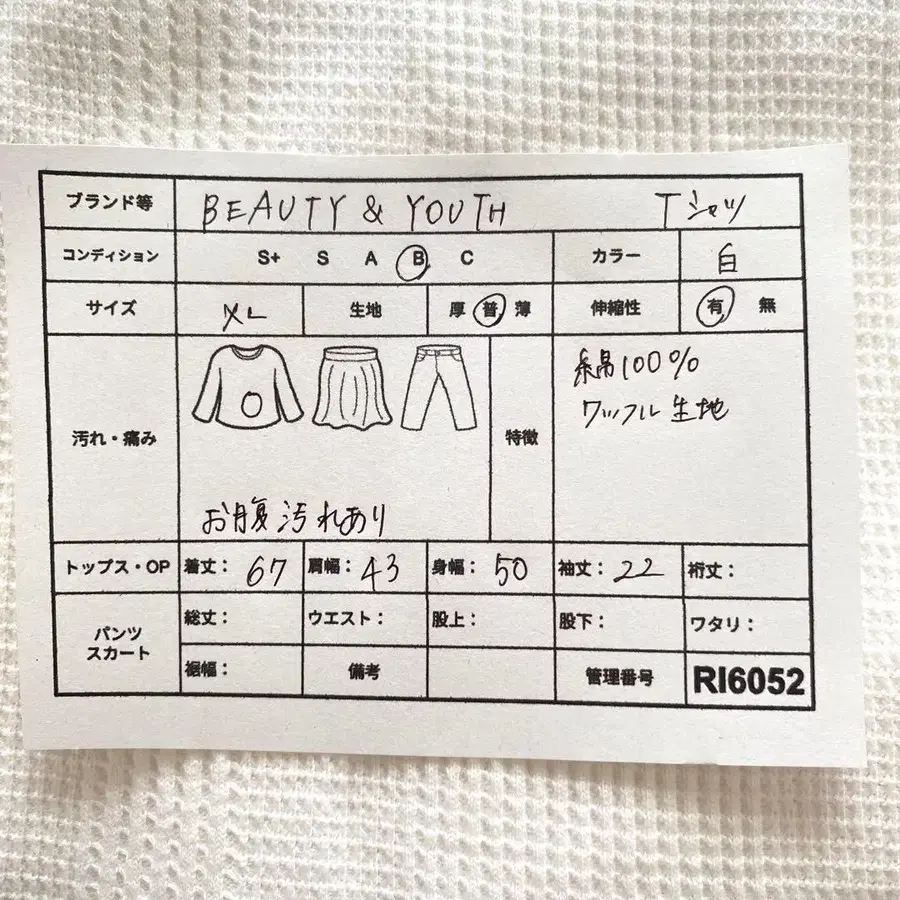 ブランド等 BEAUTY & YOUTH Tシャツ
コンディション S+ S A B C カラー 白
サイズ XL 生地 厚 普 薄 伸縮性 有 無
汚れ・痛み 特徴 綿100%
ワッフル生地
お腹汚れあり
トップス・OP 着丈: 67 肩幅: 43 身幅: 50 袖丈: 22 裄丈:
パンツ スカート 総丈: ウエスト: 股上: 股下: ワタリ:
裾幅: 備考 管理番号 RI6052